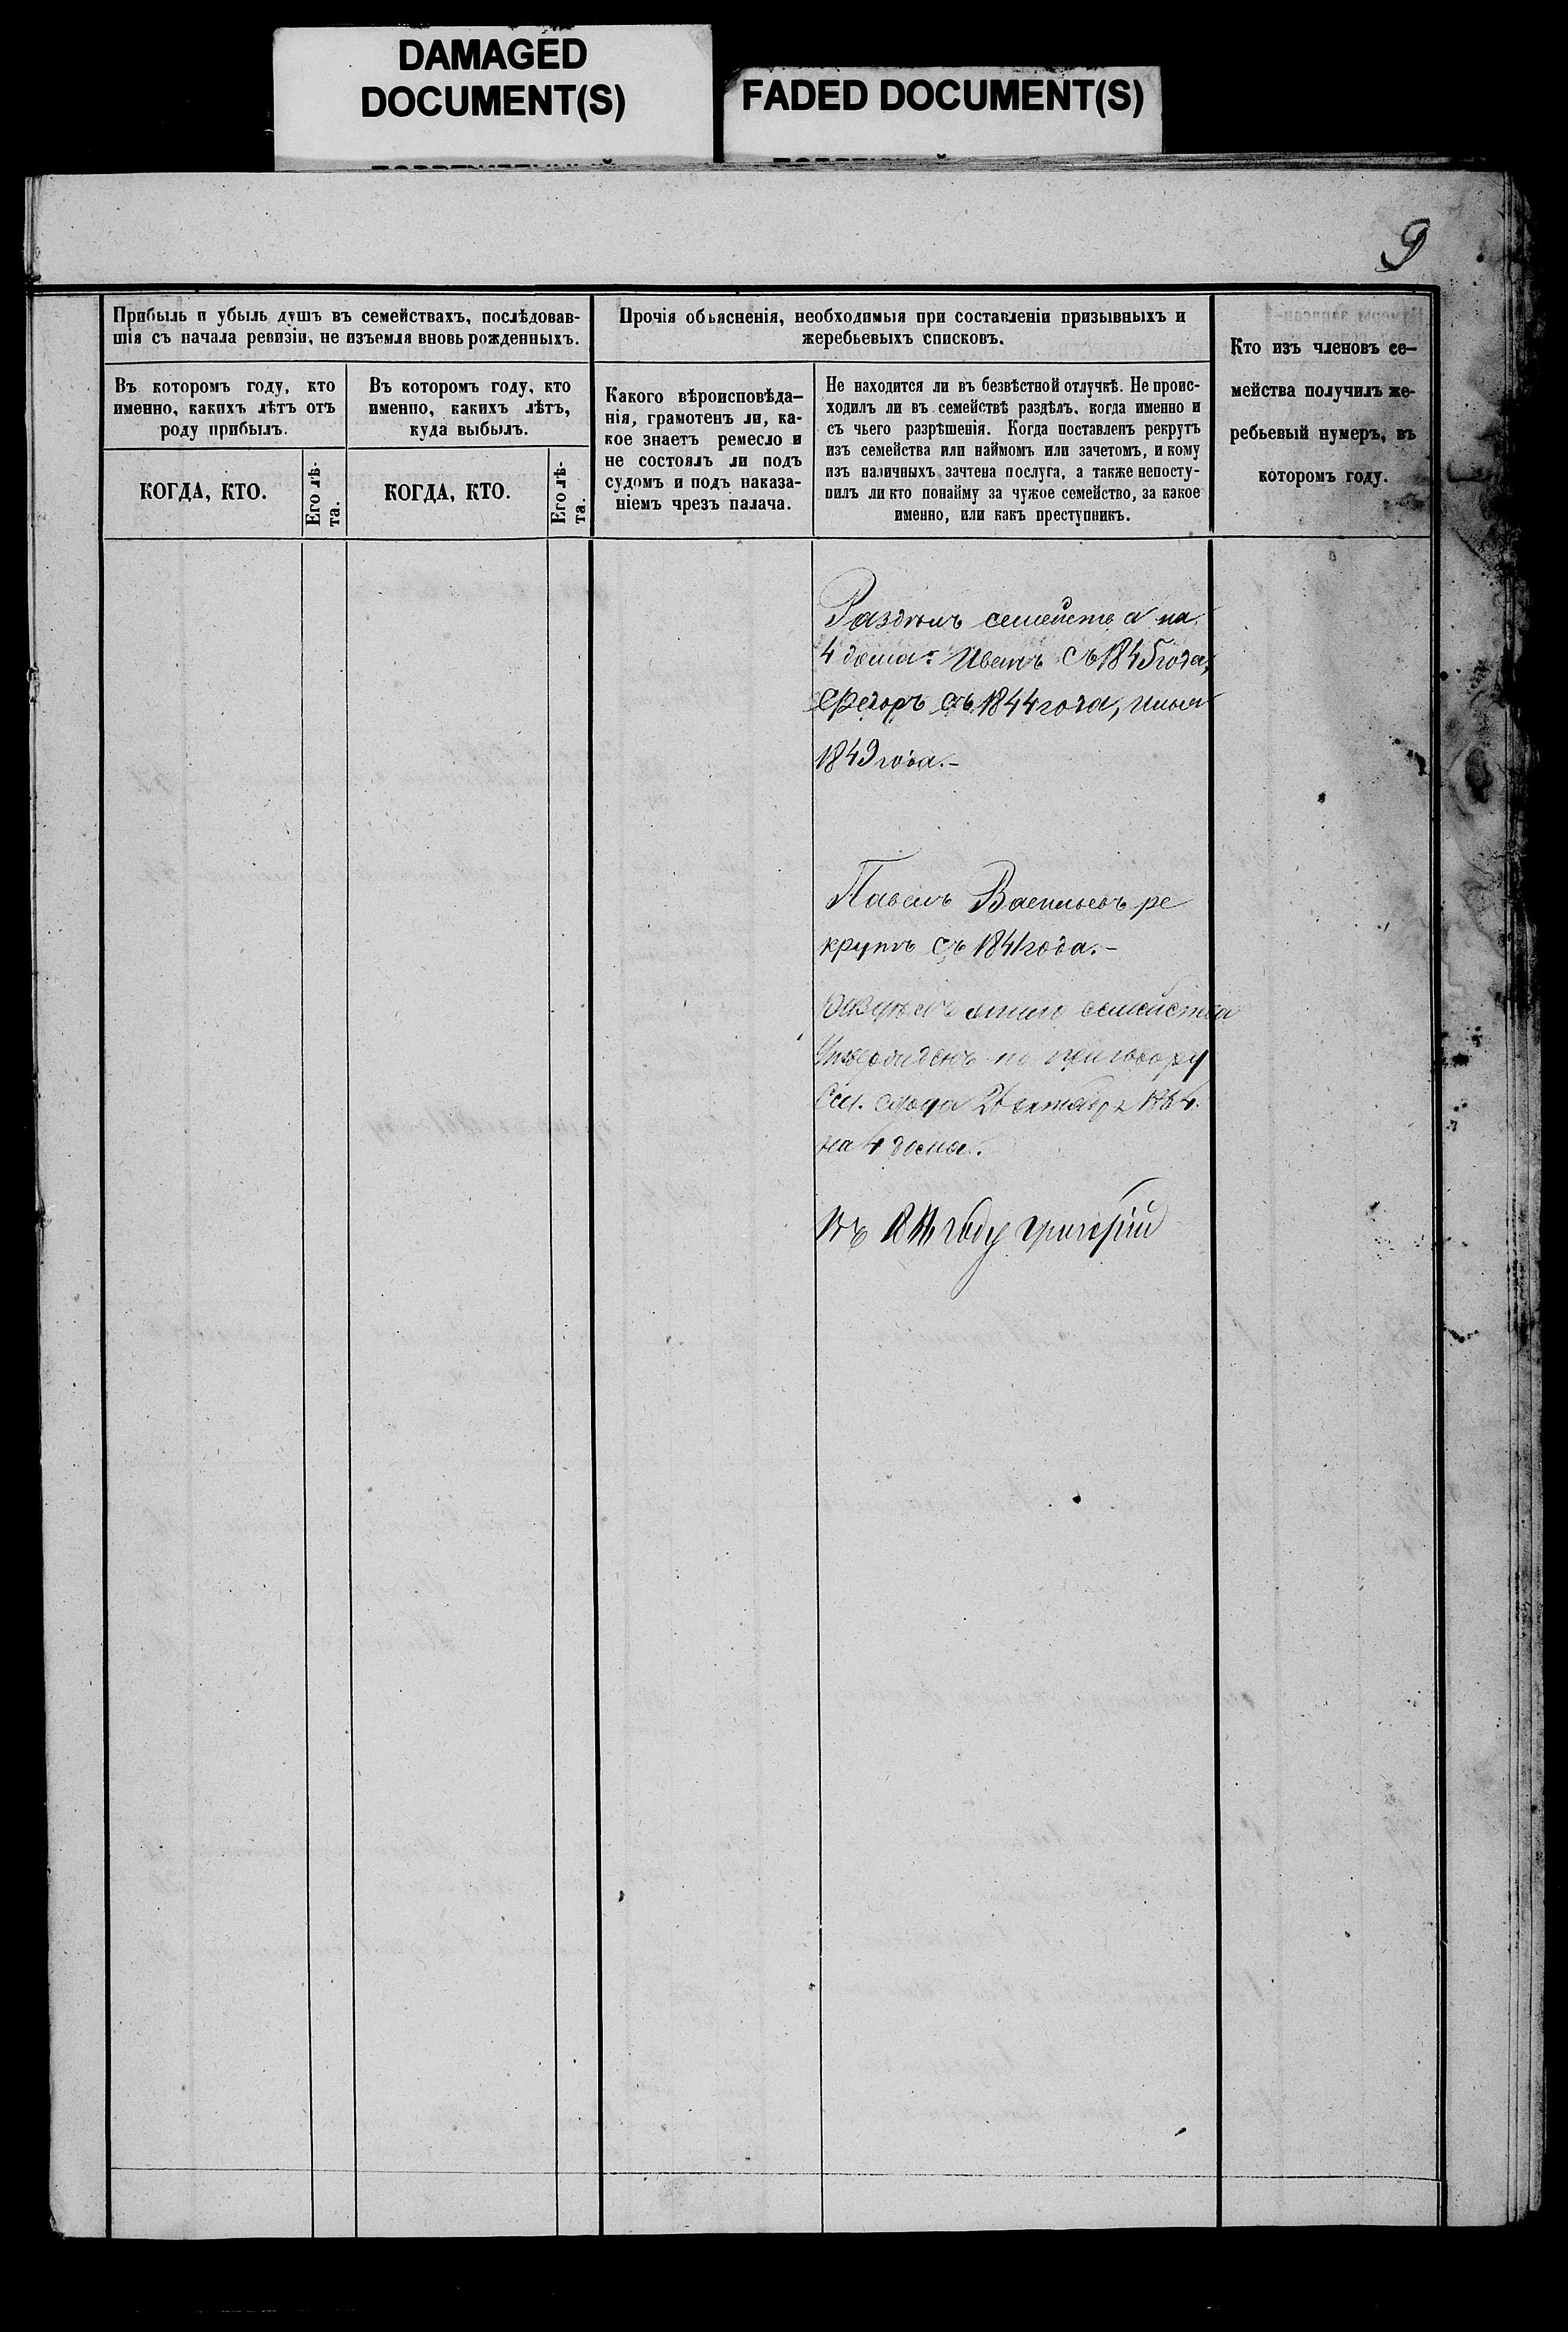 DAMAGED
DOCUMENT(S)
FADED DOCUMENT(S)
9
Прибыль и убыль душъ въ семействахъ, послѣдовав-
шія съ начала ревизіи, не изъемля вновь рожденныхъ.
Въ которомъ году, кто
именно, какихъ лѣтъ отъ
роду прибылъ.
КОГДА, КТО.
Его лѣ-
та.
Въ которомъ году, кто
именно, какихъ лѣтъ,
куда выбылъ.
КОГДА, КТО.
Его лѣ-
та.
Прочія объясненія, необходимыя при составленіи призывныхъ и
жеребьевыхъ списковъ.
Какого вѣроисповѣда-
нія, грамотенъ ли, ка-
кое знаетъ ремесло и
не состоялъ ли подъ
судомъ и подъ наказа-
ніемъ чрезъ палача.
Не находится ли въ безвѣстной отлучкѣ. Не проис-
ходилъ ли въ семействѣ раздѣлъ, когда именно и
съ чьего разрѣшенія. Когда поставленъ рекрутъ
изъ семейства или наймомъ или зачетомъ, и кому
изъ наличныхъ зачтена послуга, а также непосту-
пилъ ли кто понайму за чужое семейство, за какое
именно, или какъ преступникъ.
Кто изъ членовъ се-
мейства получилъ же-
ребьевый нумеръ, въ
которомъ году.
Раздѣлъ семейства на
4 дома: Иванъ съ 1845 года,
Федоръ съ 1844 года, Илья
1849 года.-
Павелъ Васильевъ ре
крутъ съ 1841 года.-
Раздѣлъ этаго семейства
Утвержденъ по приговору
схода 1864.
на 4 дома.
Въ году Григорій